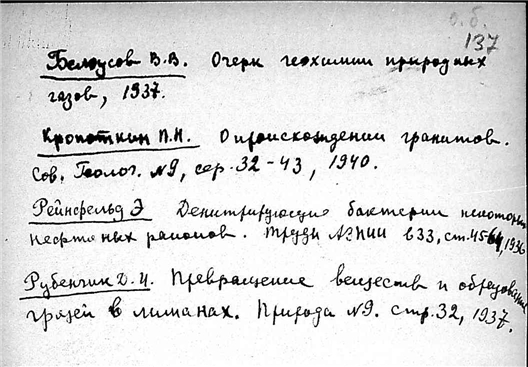 о.б.
137
Белоусов В.В. Очерк геохимии природных
газов, 1937.
Кропоткин П.Н. О происхождении гранитов.
Сов. Геолог. №9, сер. 32-43, 1940.
Рейнсфельд Э Денитрирующие бактерии некоторых
нефтяных районов. Труды АзНИИ в 33, ст. 45-64, 1936
Рубенчик Л.И. Превращение веществ и образование
грязей в лиманах. Природа №9. стр. 32, 1937.